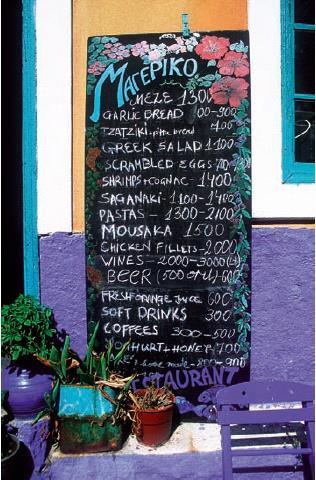 ΜΑΓΕΡΙΚΟ
MEZE 1300
GARLIC BREAD 700-900
TZATZIKI+pitta bread
GREEK SALAD 1100
SCRAMBLED EGGS
SHRIMPS+COGNAC-1400
SAGANAKI-1100-1400
PASTAS-1300-2100
MOUSAKA 1500
CHICKEN FILLETS-2000
WINES-2000-3000
BEER (500
FRESH ORANGE JUICE 600
SOFT DRINKS 300
COFFEES 300-500
YOGHURT+HONEY-700
home made-800-900
RESTAURANT